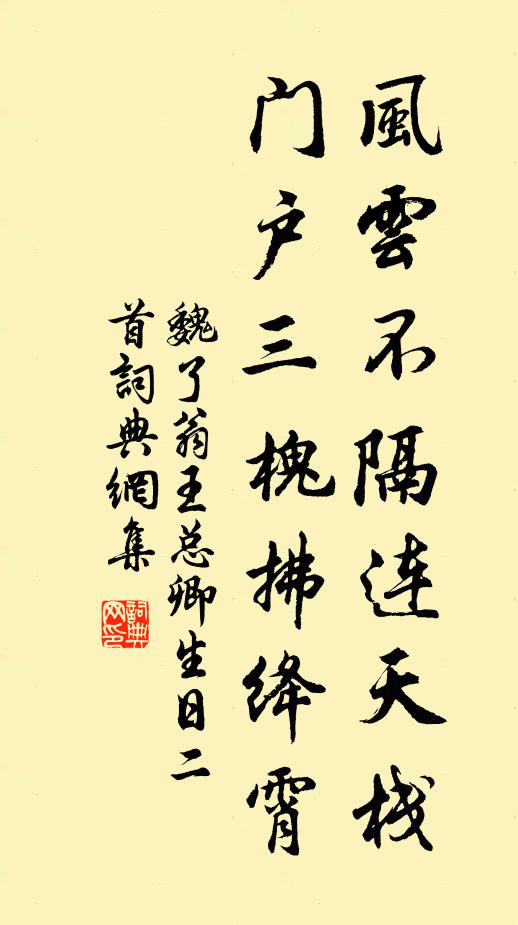 風雲不隔連天棧
門户三槐拂絳霄
魏了翁王总卿生日二
首詞典網集
詞典
网印